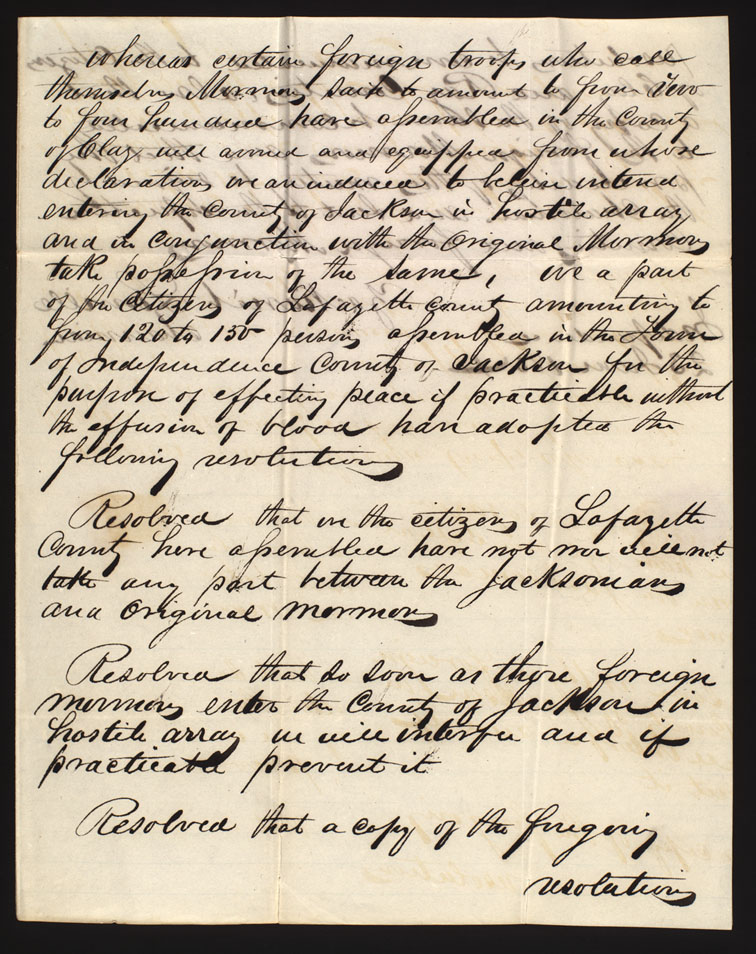 Whereas certain foreign troops who call
themselves Mormons said to amount to from Two
to four hundred have assembled in the County
of Clay well armed and equipped from whose
declarations we are induced to believe intend
entering the County of Jackson in hostile array
and in conjunction with the Original Mormons
take possession of the same, we a part
of the Citizens of Lafayette county amounting to
from 120 to 150 persons assembled in the Town
of Independence County of Jackson for the
purpose of effecting peace if practicable without
the effusion of blood have adopted the
following resolutions
Resolved that we the citizens of Lafayette
County here assembled have not nor will not
take any part between the Jacksonians
and Original Mormons
Resolved that so soon as those foreign
mormons enter the County of Jackson in
hostile array we will interfere and if
practicable prevent it
Resolved that a copy of the foregoing
resolutions